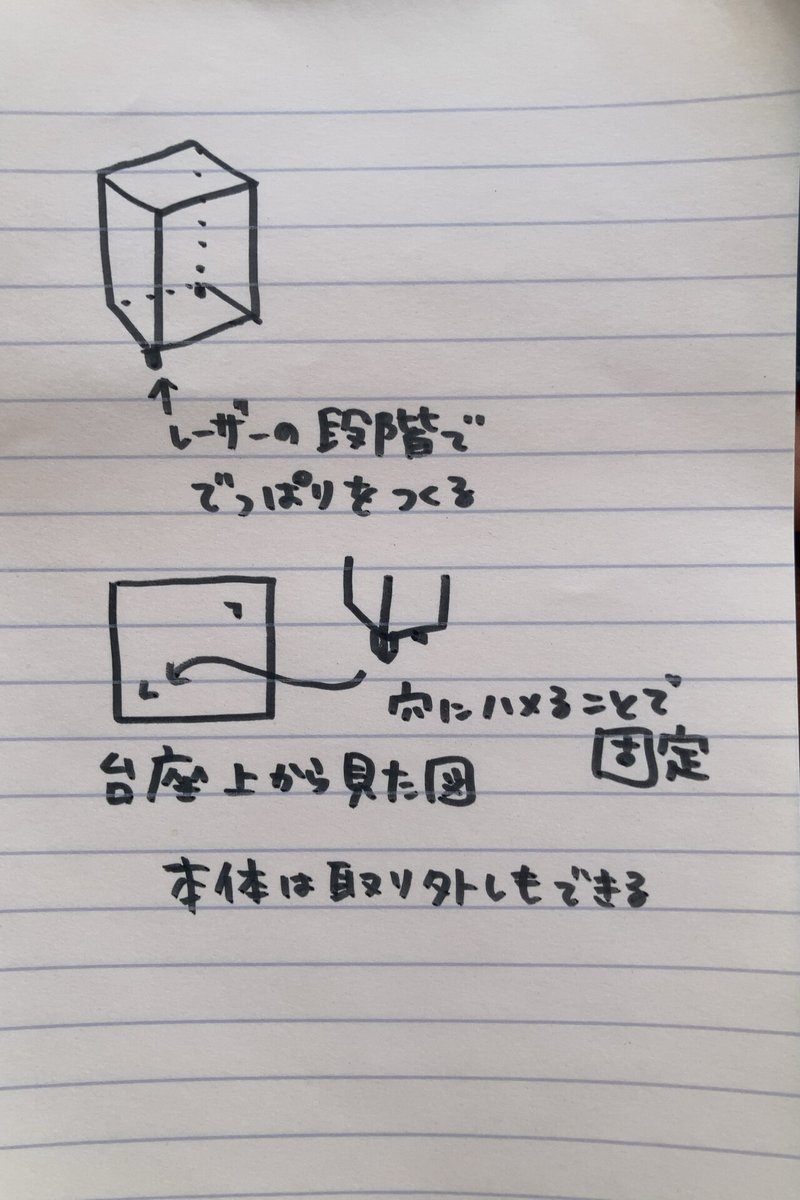 レーザーの段階で
でっぱりをつくる
穴にハメることで
固定
台座上から見た図
本体は取り外しもできる